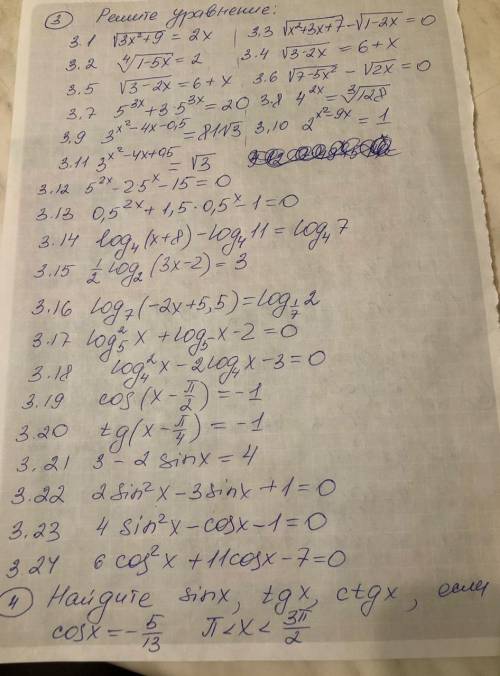 ③ Решите уравнение:
3.1 √(3x²+9) = 2x 3.3 √(x²+3x+7) - √(1-2x) = 0
3.2 ⁴√(1-5x) = 2 3.4 √(3-2x) = 6+x
3.5 √(3-2x) = 6+x 3.6 √(7-5x²) - √(2x) = 0
3.7 5^(3x) + 3·5^(3x) = 20 3.8 4^(2x) = ³√128
3.9 3^(x²-4x-0,5) = 81√3 3.10 2^(x²-9x) = 1
3.11 3^(x²-4x+0,5) = √3
3.12 5^(2x) - 2·5^x - 15 = 0
3.13 0,5^(2x) + 1,5·0,5^x - 1 = 0
3.14 log₄(x+8) - log₄11 = log₄7
3.15 ½log₂(3x-2) = 3
3.16 log₇(-2x+5,5) = log_(1/7) 2
3.17 log₅²x + log₅x - 2 = 0
3.18 log₄²x - 2log₄x - 3 = 0
3.19 cos(x - π/2) = -1
3.20 tg(x - π/4) = -1
3.21 3 - 2 sinx = 4
3.22 2sin²x - 3sinx + 1 = 0
3.23 4 sin²x - cosx - 1 = 0
3.24 6 cos²x + 11cosx - 7 = 0
④ Найдите sinx, tgx, ctgx, если
cosx = -5/13 π < x < 3π/2